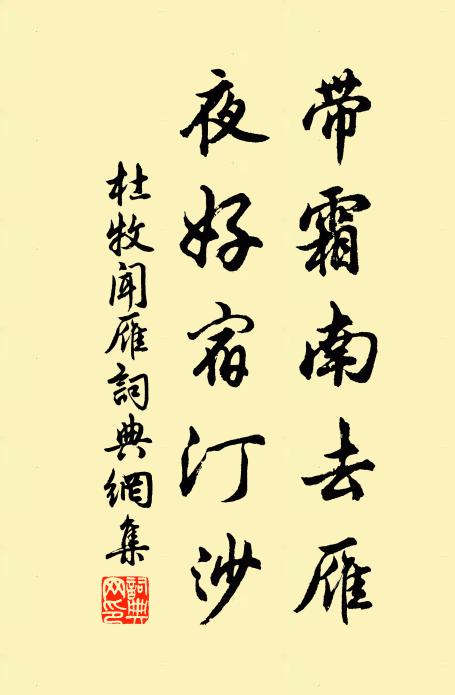 带霜南去雁
夜好宿汀沙
杜牧闻雁詞典網集
詞典网印